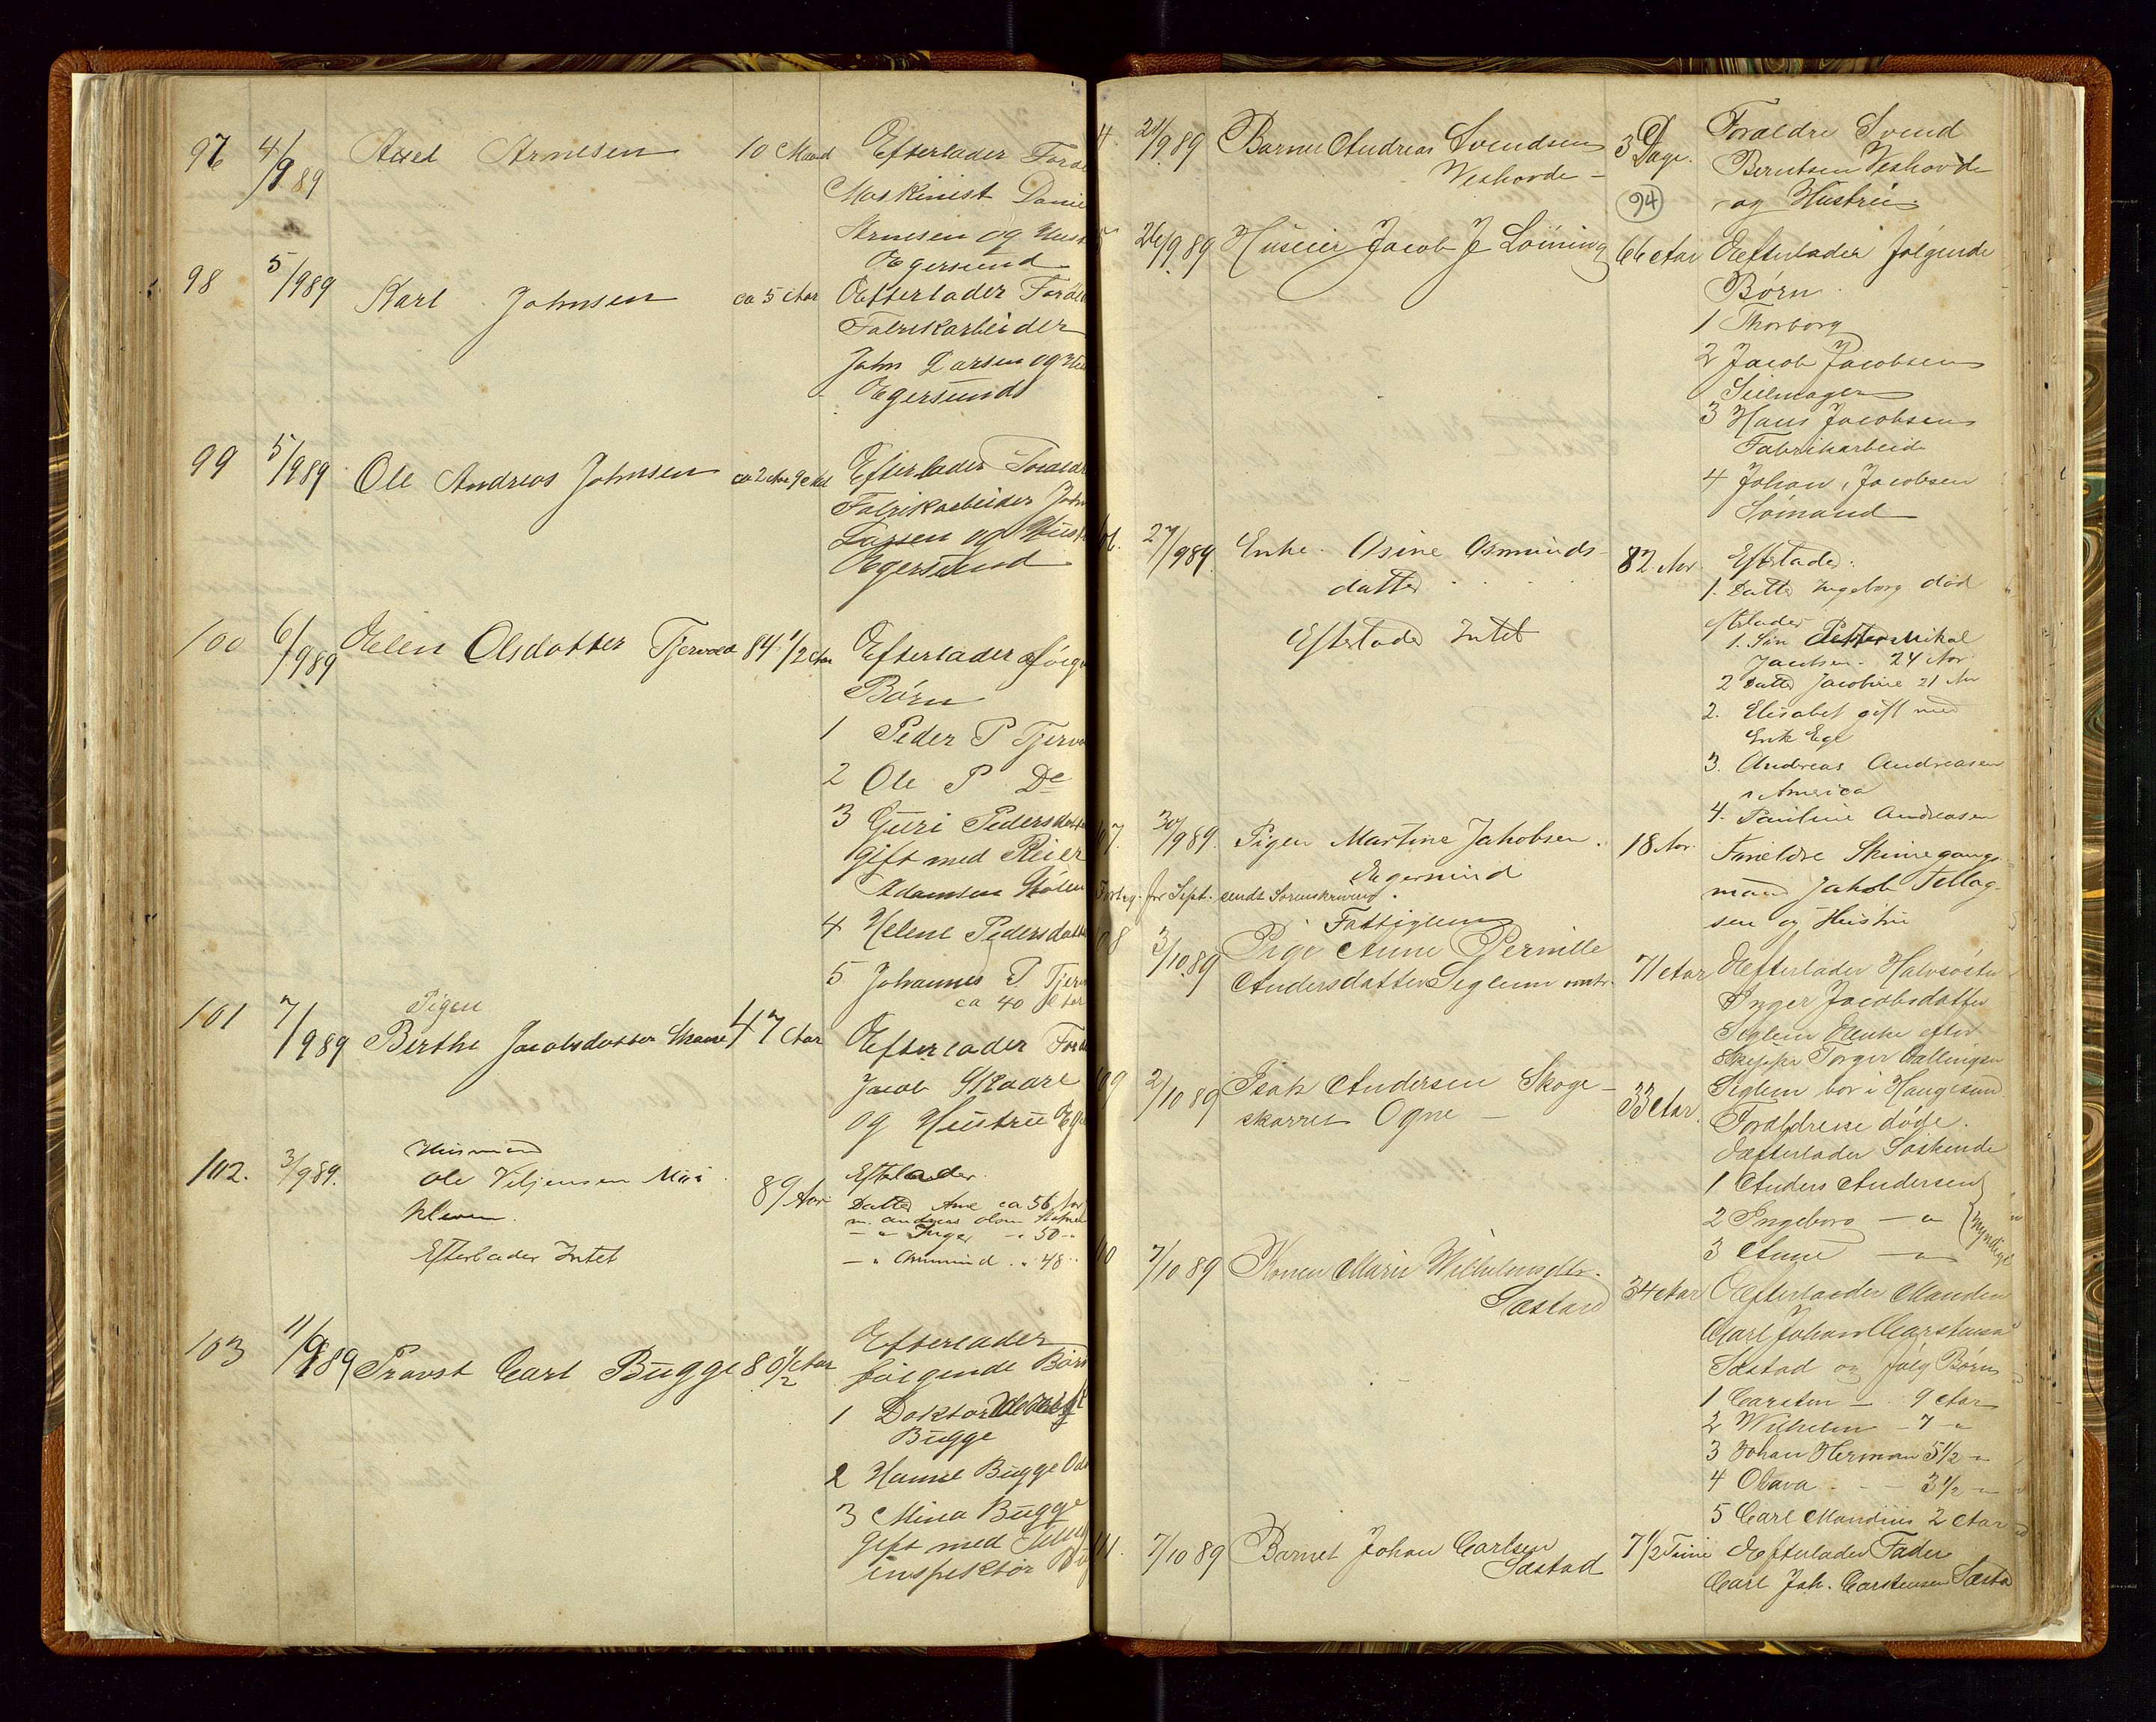 97 4/9 89 Axel Arnesen 10 Maand Efterlader Foræ
Maskinist Danie
Arnesen og Hust
Egersund
98 5/9 89 Karl Johnsen ca 5 Aar Efterlader Foræl
Fabrikarbeider
John Larsen og Hu
Egersund
99 5/9 89 Ole Andreas Johnsen ca 2 Aar 9 Md Efterlader Forældr
Fabrikarbeider John
Larsen og Hust
Egersund
100 6/9 89 Elen Olsdatter Tjervold 84 1/2 Aar Efterlader følge
Børn
1 Peder P Tjervo
2 Ole P Do
3 Guri Pedersdatte
gift med Reier
Adamsen
4 Helene Pedersdatte
5 Johannes P. Tjerv
ca 40 Aar
101 7/9 89 Pigen
Berthe Jacobsdatter Skaare 47 Aar Efterlader Foræ
Jacob Skaare
og Hustru Eg
102. 3/9 89. Husmand
Ole Viljensen
Kleven. 89 Aar Efterlader.
Efterlader Intet
Datter Ane ca 56 Aar
m. Andreas Olsen
— " Inger — " 50 "
— " Ommund . " 48 "
103 11/9 89 Provst Carl Bugge 80 1/2 Aar Efterlader
følgende Børn
1 Doktor
Bugge
2 Hanne Bugge
3 Mina Bugge
gift med
inspektør
4. 21/9. 89 Barnet Andreas Svendsen
Veshovde — 3 Dage. Forældre Svend
Berntsen Veshovde
og Hustru.
94
5 26/9 89 Huseier Jacob J Løining 66 Aar Efterlader følgende
Børn
1 Thorborg
2 Jacob Jacobsen
Seilmager
3 Hans Jacobsen
Fabrikarbeid
4 Johan Jacobsen
Sømand
06. 27/9 89. Enke. Osine Osmunds-
datter
Efterlader Intet
82. Aar Efterlader.
1. Datter Ingeborg død
efterlader
1. Søn Mikal
Jacobsen. 24 Aar
2 Datter Jacobine 21 Aar
2. Elisabet gift med
Erik Ege
3. Andreas Andreasen
i America
4. Pauline Andreasen
07. 30/9 89. Pigen Martine Jakobsen.
Egersund 18 Aar. Forældre Skinnegangs
mand Jakob Tollag-
sen og Hustru
Forteg. for Sept. sendt Sorenskriveren.
08 3/10 89 Fattiglem
Pige Anne Pernille
Andersdatter Seglem 71 Aar Efterlader Halvsøster
Inger Jacobsdatter
Seglem Enke efter
Skipper Torger Tallingsen
Seglem bor i Haugesund.
09 2/10 89 Isak Andersen Skoge-
skarret Ogne — 33 Aar. Forældrene døde.
Efterlader Søskende
1 Anders Andersen
2 Ingeborg — " myndige
3 Anne — "
10 7/10 89 Konen Marie Wilhelmsdtr.
Sæstad 34 Aar Efterlader Manden
Carl Johan Carstensen
Sæstad og følg Børn
1 Carsten — 9 Aar
2 Wilhelm — 7 "
3 Johan Herman 5 1/2 — "
4 Olava — 3 1/2 — "
5 Carl Mandius 2 Aar
11. 7/10 89 Barnet Johan Carlsen
Sæstad 7 1/2 Time Efterlader Fader
Carl Joh. Carstensen Sæsta